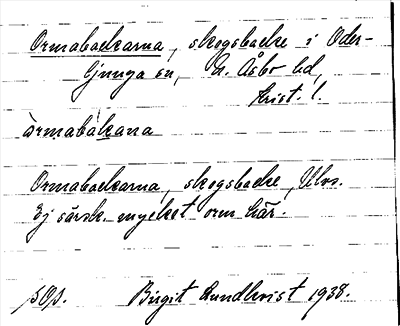 Ormabackarna, skogsbacke i Oder-
ljunga sn, N. Åsbo hd,
Krist. l.
òrmabákana
Ormabackarna, skogsbacke,
Ej särsk. mycket orm här.
Birgit Lundkvist 1938.